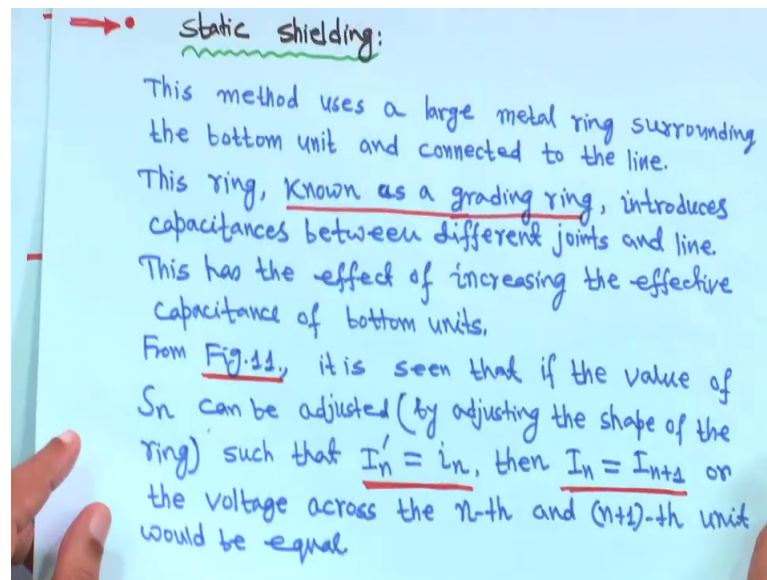 Static shielding:
This method uses a large metal ring surrounding
the bottom unit and connected to the line.
This ring, known as a grading ring, introduces
capacitances between different joints and line.
This has the effect of increasing the effective
capacitance of bottom units.
From Fig.11., it is seen that if the value of
Sn can be adjusted (by adjusting the shape of the
ring) such that I'n = in, then In = In+1 or
the voltage across the n-th and (n+1)-th unit
would be equal